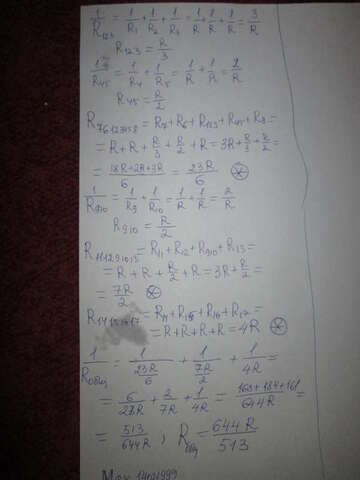 1/R123 = 1/R1 + 1/R2 + 1/R3 = 1/R + 1/R + 1/R = 3/R
R123 = R/3
1/R45 = 1/R4 + 1/R5 = 1/R + 1/R = 2/R
R45 = R/2
R76123458 = R7 + R6 + R123 + R45 + R8 =
= R + R + R/3 + R/2 + R = 3R + R/3 + R/2 =
= (18R+2R+3R)/6 = 23R/6 ⊛
1/R910 = 1/R9 + 1/R10 = 1/R + 1/R = 2/R
R910 = R/2
R111291013 = R11 + R12 + R910 + R13 =
= R + R + R/2 + R = 3R + R/2 =
= 7R/2 ⊛
R14151617 = R14 + R15 + R16 + R17 =
= R + R + R + R = 4R ⊛
1/Rобщ = 1/(23R/6) + 1/(7R/2) + 1/4R =
= 6/23R + 2/7R + 1/4R = (168+184+161)/644R =
= 513/644R ; Rобщ = 644R/513